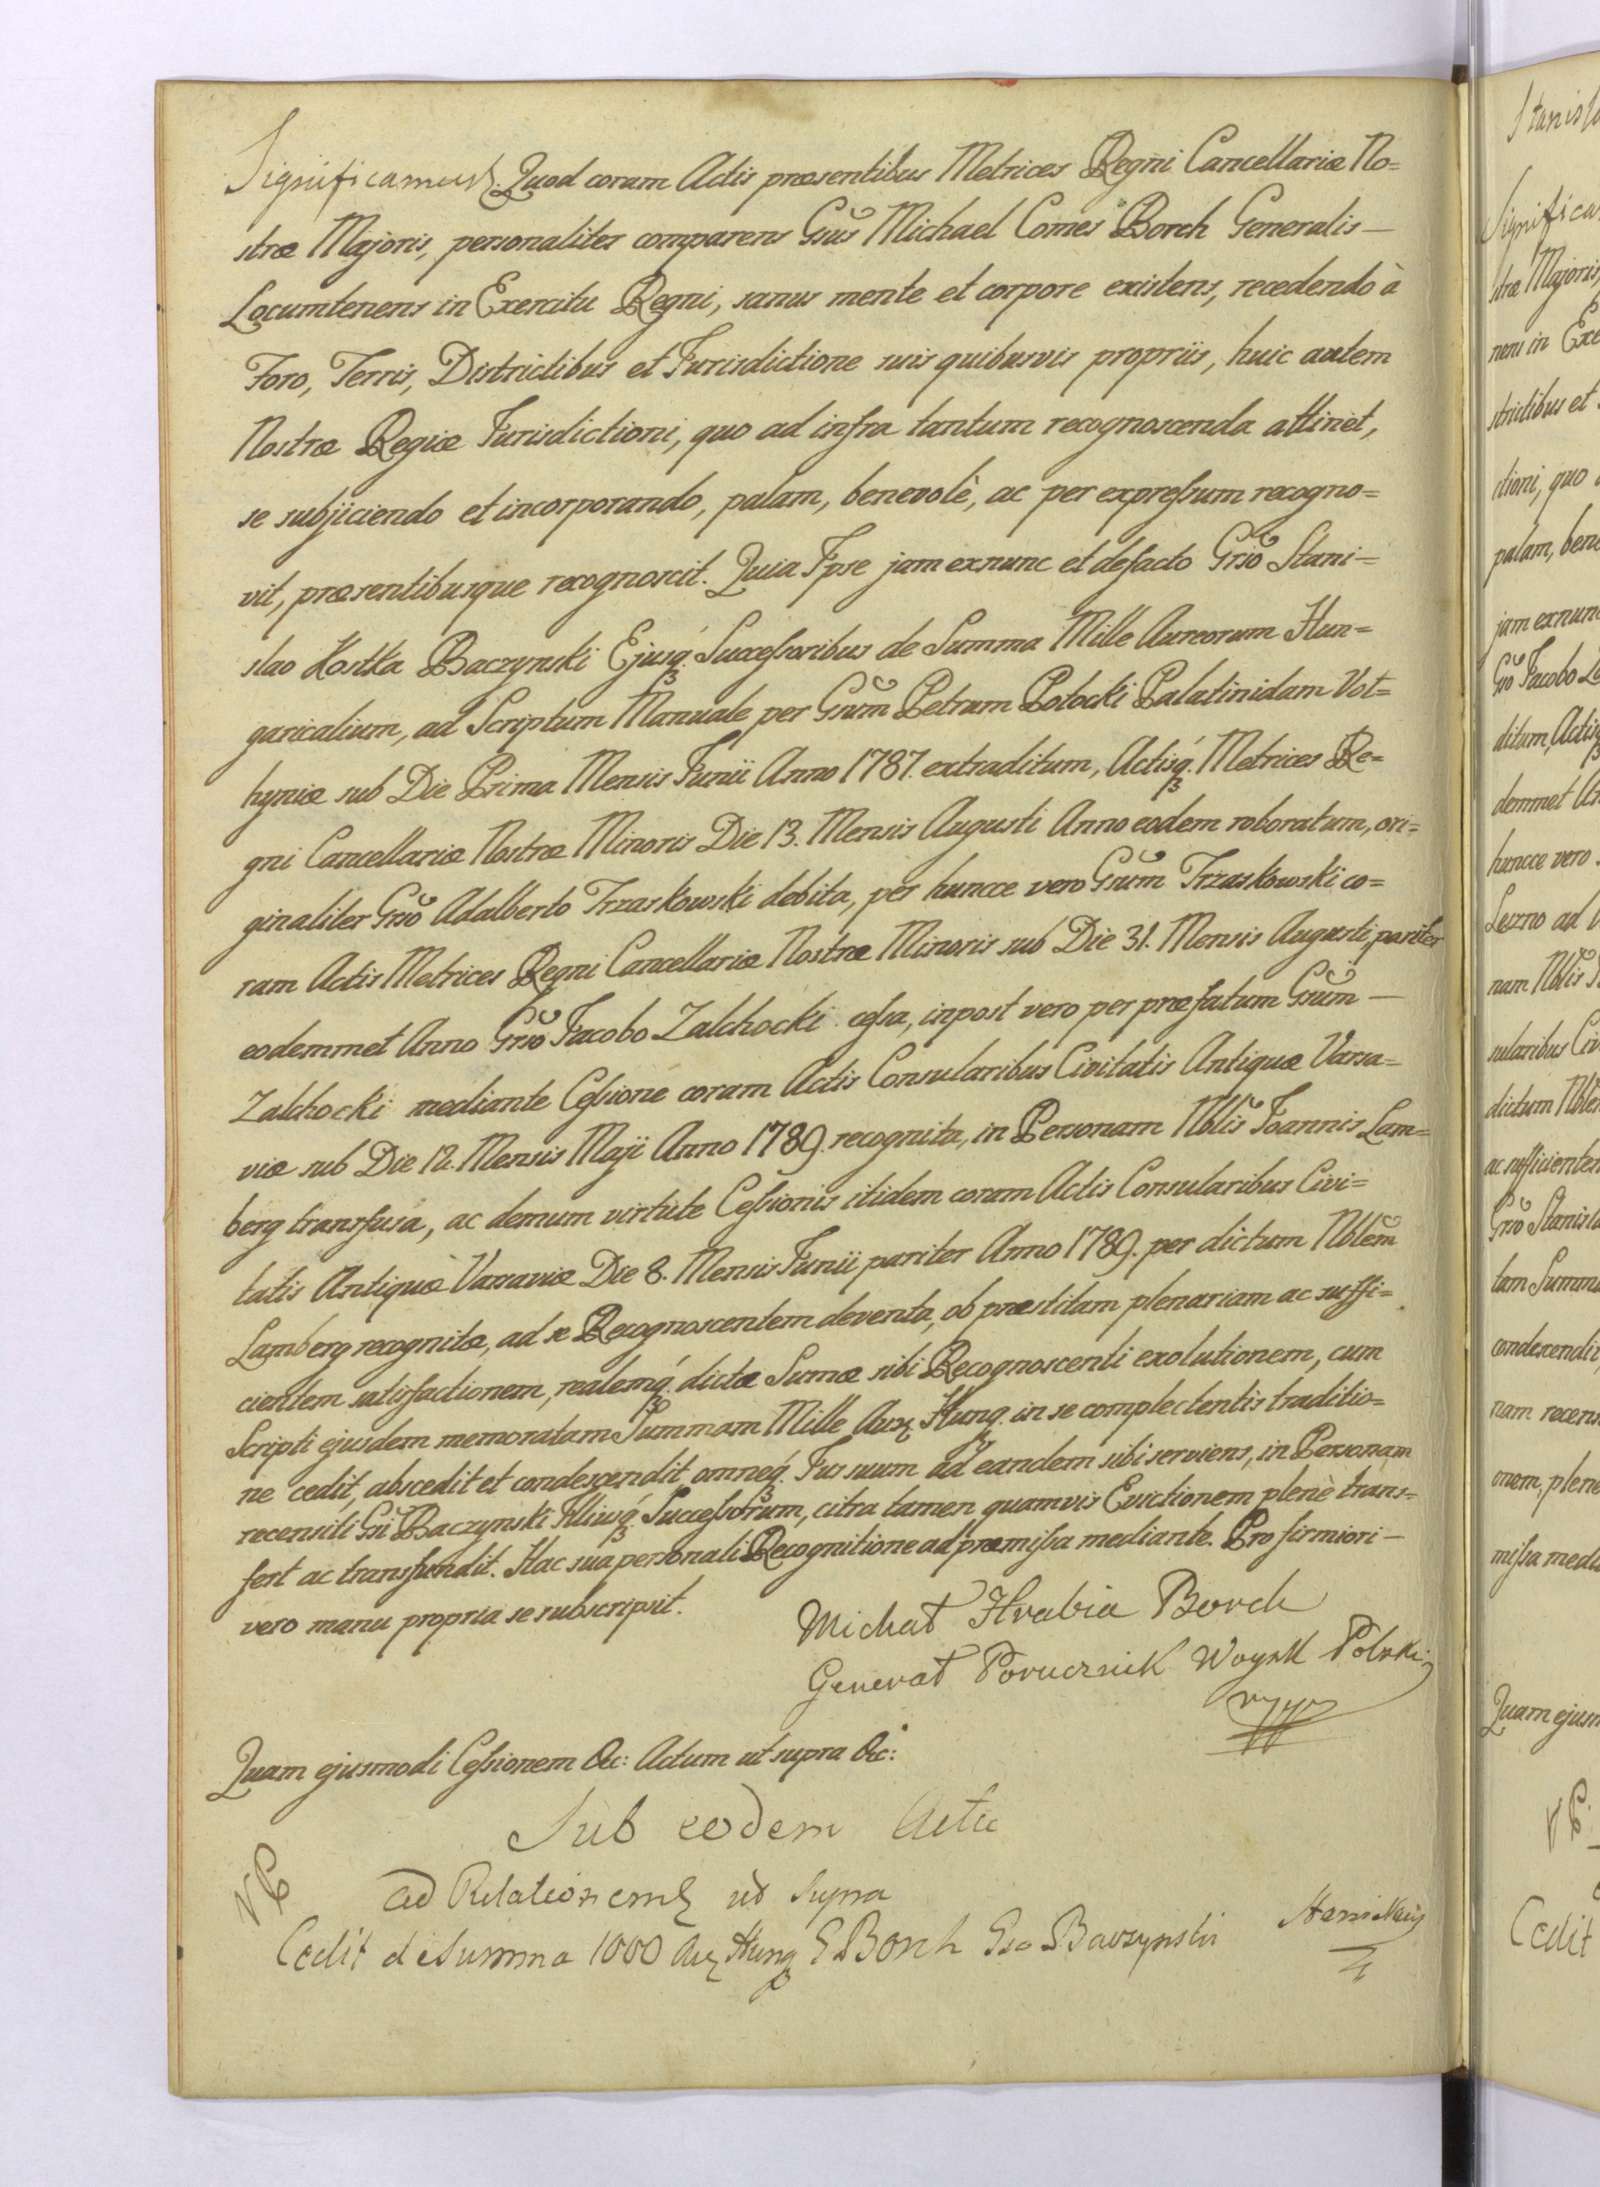 Significamus. Quod coram Actis præsentibus Metrices Regni Cancellariæ No=
stræ Majoris, personaliter comparens Gsus Michael Comes Borch Generalis —
Locumtenens in Exercitu Regni, sanus mente et corpore existens, recedendo à
Foro, Terris, Districtibus et Jurisdictione suis quibusvis propriis, huic autem
Nostræ Regiæ Jurisdictioni, quo ad infra tantum recognoscenda attinet,
se subjiciendo et incorporando, palam, benevolè, ac per expressum recogno=
vit, præsentibusque recognoscit. Quia Ipse jam exnunc et defacto Gso Stani=
slao Kostka Baczynski Ejusq́. Successoribus de Summa Mille Aureorum Hun=
garicalium, ad Scriptum Manuale per Gsum Petrum Potocki Palatinidam Vol=
hyniæ sub Die Prima Mensis Junii Anno 1787. extraditum, Actisq́. Metrices Re=
gni Cancellariæ Nostræ Minoris Die 13. Mensis Augusti Anno eodem roboratum, ori=
ginaliter Gso Adalberto Trzaskowski debita, per huncce vero Gsum Trzaskowski co=
ram Actis Metrices Regni Cancellariæ Nostræ Minoris sub Die 31. Mensis Augusti, pariter
eodemmet Anno Gso Jacobo Zalchocki cessa, inpost vero per præfatum Gsum —
Zalchocki mediante Cessione coram Actis Consularibus Civitatis Antiquæ Varsa=
viæ sub Die 12. Mensis Maji Anno 1789. recognita, in Personam Nblis Joannis Lam=
berg transfusa, ac demum virtute Cessionis itidem coram Actis Consularibus Civi=
tatis Antiquæ Varsaviæ Die 8. Mensis Junii pariter Anno 1789. per dictum Nblem
Lamberg recognitæ, ad se Recognoscentem deventa, ob præstitam plenariam ac suffi=
cientem satisfactionem, realemq́. dictæ Sumæ sibi Recognoscenti exolutionem, cum
Scripti ejusdem memoratam Summam Mille Aur. Hung. in se complectentis traditio=
ne cedit, abscedit et condescendit, omneq́. Jus suum ad eandem sibi serviens, in Personam
recensiti Gsi Baczynski Illiusq́. Successorum, citra tamen quamvis Evictionem plenè trans=
fert ac transfundit. Hac sua personali Recognitione ad præmissa mediante. Pro firmiori —
vero manu propria se subscripsit.
Michał Hrabia Borch
Generał Porucznik Woysk Polski
mpp
Quam ejusmodi Cessionem &c: Actum ut supra &c:
Sub eodem Actu
ad Relationem ut supra
Cedit de Summa 1000 Aur. Hung. G Borch Gso Baczynski
Stanisł
Significa
stræ Majoris,
nens in Exe
strictibus et
ctioni, quo
palam, bene
jam exnunc
Gso Jacobo Za
ditum, Actisq
demmet An
huncce vero
Leszno ad
nam Nblis
sularibus Civ
dictum Nblem
ac sufficientem
Gso Stanisla
tam Summa
condescendit,
nam recens
onem, plene
missa media
Quam ejusm
Cedit